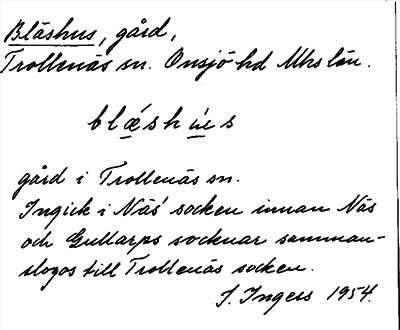 Blåshus, gård,
Trollenäs sn. Onsjö hd Mhs län.
blǽshúes
gård i Trollenäs sn.
Ingick i Näs' socken innan Näs
och Gullarps socknar samman-
slogos till Trollenäs socken.
I. Ingers 1954.